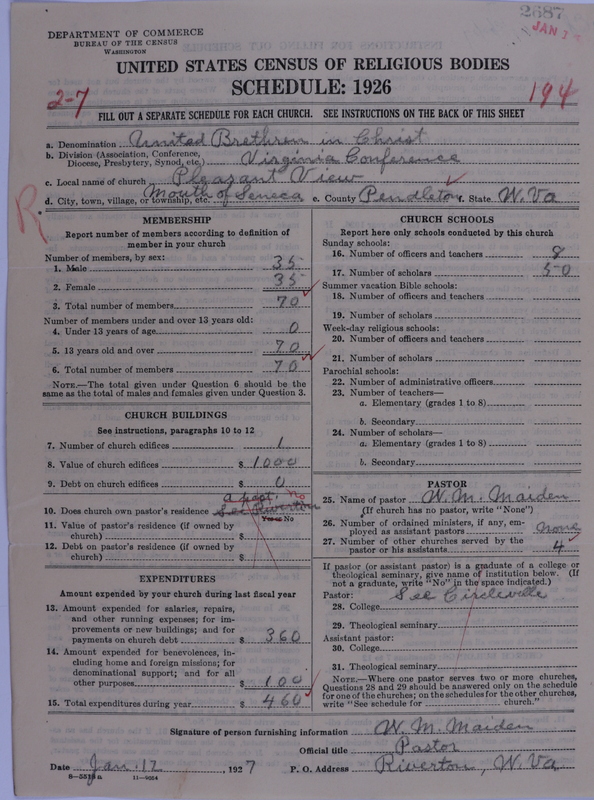 2687
JAN 3
DEPARTMENT OF COMMERCE
BUREAU OF THE CENSUS
WASHINGTON
UNITED STATES CENSUS OF RELIGIOUS BODIES
SCHEDULE: 1926
2-7
194
FILL OUT A SEPARATE SCHEDULE FOR EACH CHURCH. SEE INSTRUCTIONS ON THE BACK OF THIS SHEET
a. Denomination United Brethren in Christ
b. Division (Association, Conference, Diocese, Presbytery, Synod, etc.) Virginia Conference
c. Local name of church Pleasant View
d. City, town, village, or township, etc. Mouth of Seneca e. County Pendleton f. State W. Va
R
MEMBERSHIP
Report number of members according to definition of
member in your church
Number of members, by sex:
1. Male 35
2. Female 35
3. Total number of members 70
Number of members under and over 13 years old:
4. Under 13 years of age 0
5. 13 years old and over 70
6. Total number of members 70
NOTE.—The total given under Question 6 should be the
same as the total of males and females given under Question 3.
CHURCH BUILDINGS
See instructions, paragraphs 10 to 12
7. Number of church edifices 1
8. Value of church edifices $ 1000
9. Debt on church edifices $ 0
a part no
10. Does church own pastor's residence See Riverton
Yes or No
11. Value of pastor's residence (if owned by
church) $
12. Debt on pastor's residence (if owned by
church) $
EXPENDITURES
Amount expended by your church during last fiscal year
13. Amount expended for salaries, repairs,
and other running expenses; for im-
provements or new buildings; and for
payments on church debt $ 360
14. Amount expended for benevolences, in-
cluding home and foreign missions; for
denominational support; and for all
other purposes $ 100
15. Total expenditures during year $ 460
CHURCH SCHOOLS
Report here only schools conducted by this church
Sunday schools:
16. Number of officers and teachers 8
17. Number of scholars 50
Summer vacation Bible schools:
18. Number of officers and teachers
19. Number of scholars
Week-day religious schools:
20. Number of officers and teachers
21. Number of scholars
Parochial schools:
22. Number of administrative officers
23. Number of teachers—
a. Elementary (grades 1 to 8)
b. Secondary
24. Number of scholars—
a. Elementary (grades 1 to 8)
b. Secondary
PASTOR
25. Name of pastor W. M. Maiden
(If church has no pastor, write "None")
26. Number of ordained ministers, if any, em-
ployed as assistant pastors none
27. Number of other churches served by the
pastor or his assistants 4
If pastor (or assistant pastor) is a graduate of a college or
theological seminary, give name of institution below. (If
not a graduate, write "No" in the space indicated.)
Pastor: See Circleville
28. College
29. Theological seminary
Assistant pastor:
30. College
31. Theological seminary
NOTE.—Where one pastor serves two or more churches,
Questions 28 and 29 should be answered only on the schedule
for one of the churches; on the schedules for the other churches,
write "See schedule for church."
Signature of person furnishing information W. M. Maiden
Official title Pastor
Date Jan. 12, 1927 P. O. Address Riverton, W. Va
11-9034